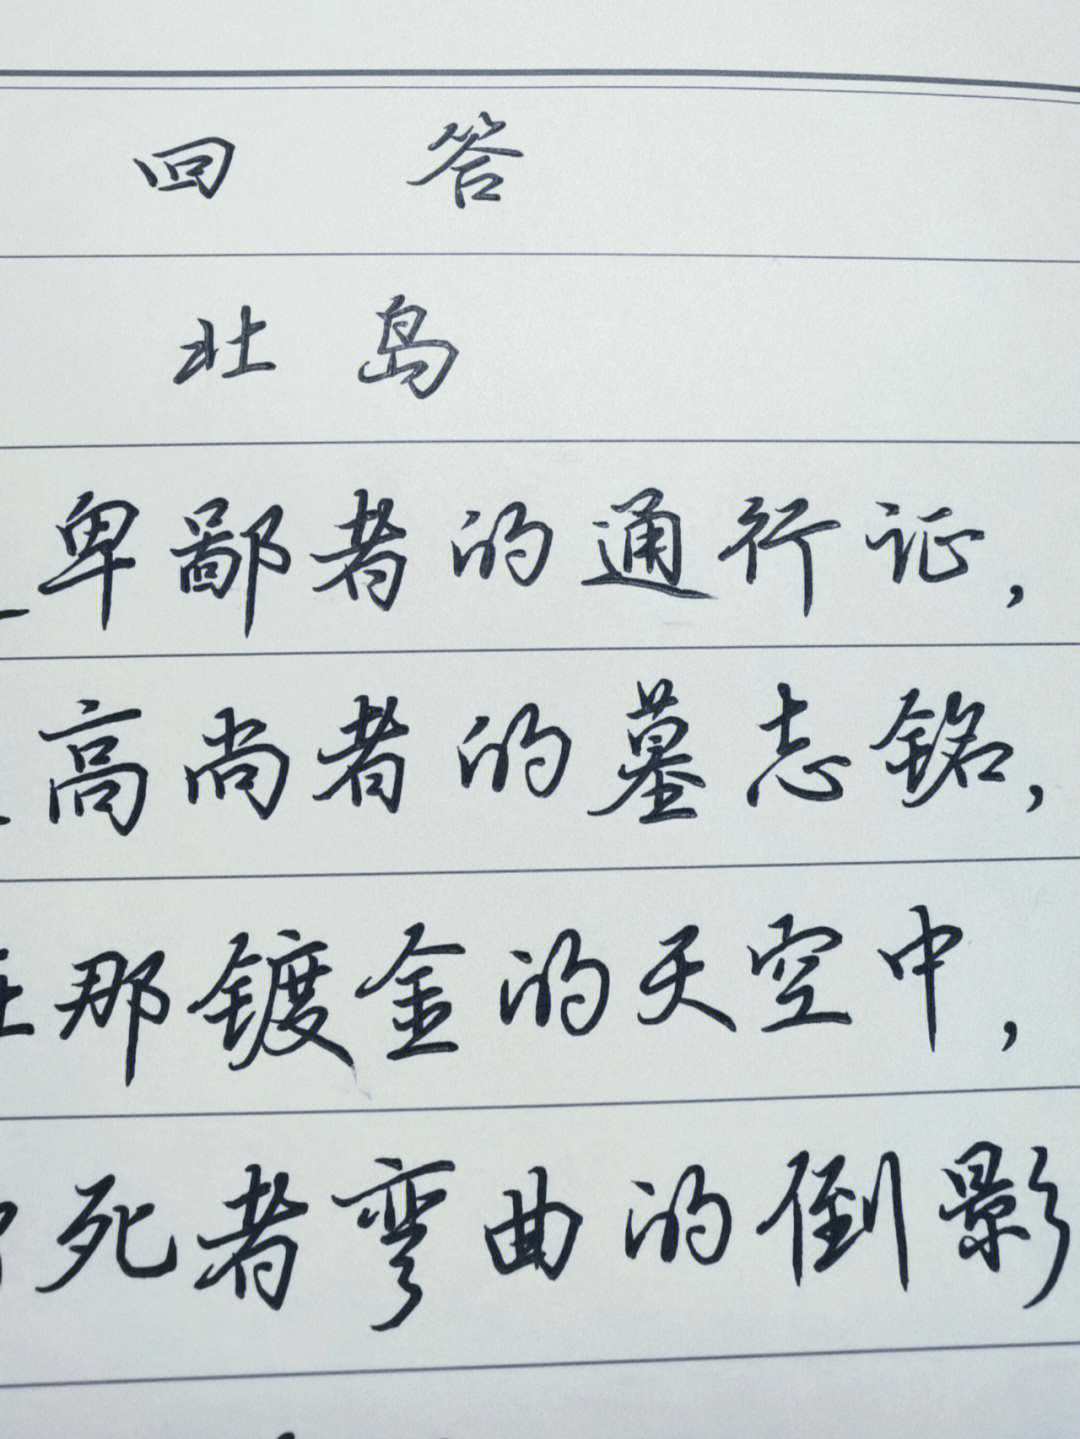 回 答
北 岛
卑鄙者的通行证,
高尚者的墓志铭,
那镀金的天空中,
死者弯曲的倒影